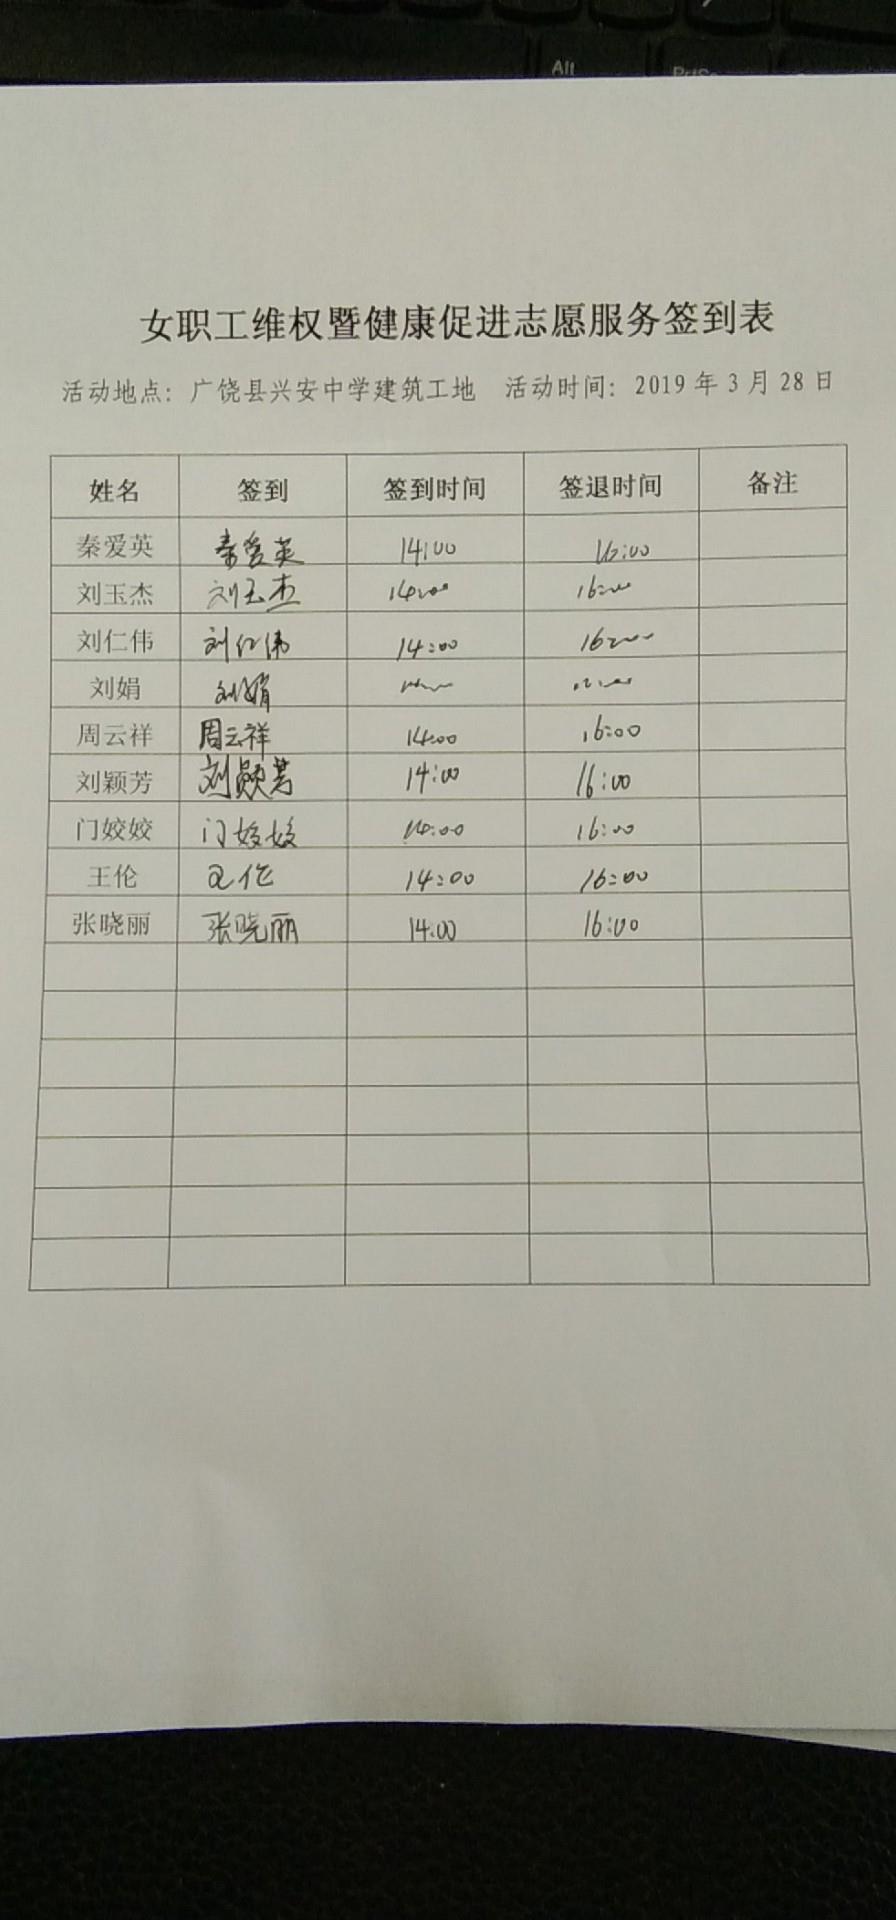 Alt
PrtSc
女职工维权暨健康促进志愿服务签到表
活动地点：广饶县兴安中学建筑工地 活动时间：2019 年 3 月 28 日
姓名 签到 签到时间 签退时间 备注
秦爱英 秦爱英 14:00 16:00
刘玉杰 刘玉杰 14:00 16:00
刘仁伟 刘仁伟 14:00 16:00
刘娟 刘娟
周云祥 周云祥 14:00 16:00
刘颖芳 刘颖芳 14:00 16:00
门姣姣 门姣姣 14:00 16:00
王伦 王伦 14:00 16:00
张晓丽 张晓丽 14:00 16:00